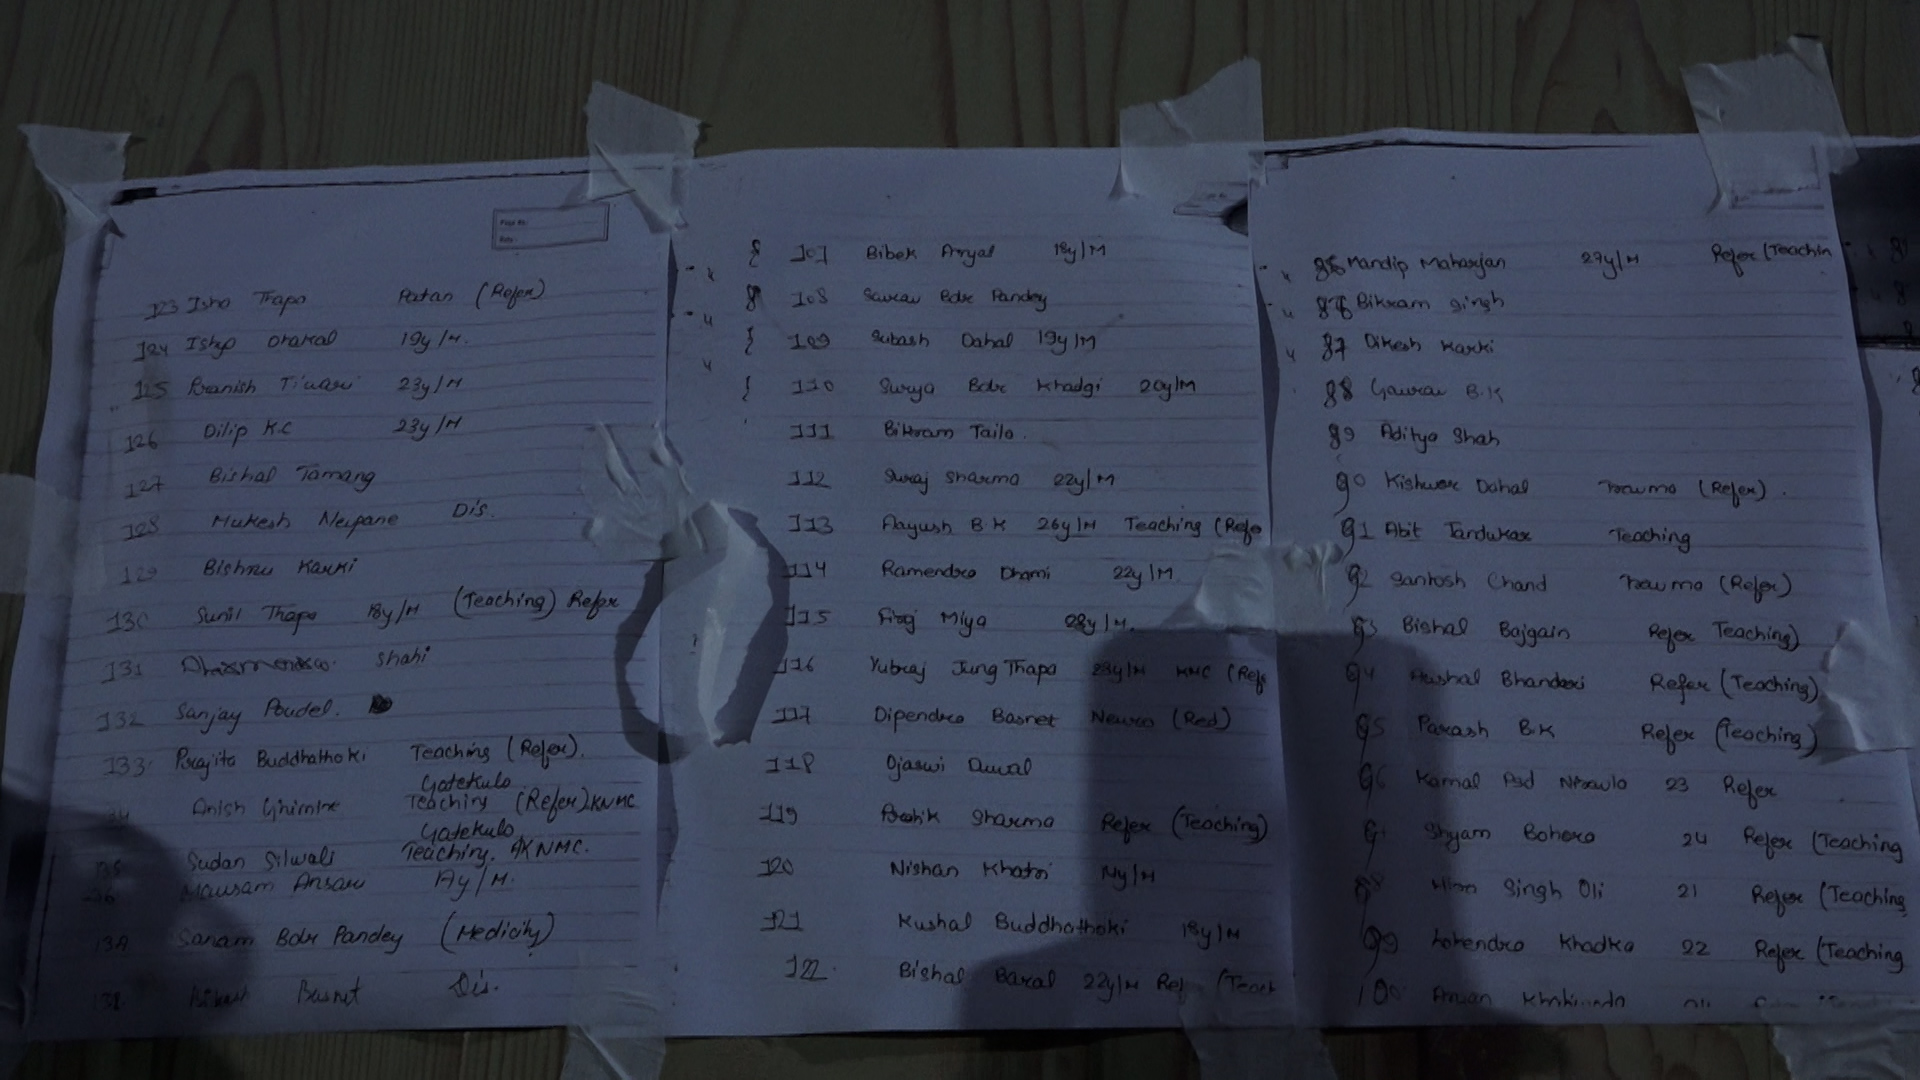 Page No.:
Date:
123 Isho Thapa Patan (Refer)
124 Ishp Dhakal 19y/M.
125 Pranish Tiwari 23y/M
126 Dilip K.C 23y/M
127 Bishal Tamang
128 Mukesh Neupane Dis.
129 Bishnu Karki
130 Sunil Thapa 18y/M (Teaching) Refer
131 Shahi
132 Sanjay Poudel.
133 Prajita Buddhathoki Teaching (Refer).
Gatekulo
Anish Ghimire Teaching (Refer) KNMC
Gatekulo
Sudan Silwali Teaching. KNMC.
Mausam Ansari
Sanam Bdr Pandey (Medicity)
138 Bikash Busnt Dis.
107 Bibek Aryal 18y/M
108 Saurav Bdr Pandey
109 Subash Dahal 19y/M
110 Surya Bdr Khadgi 20y/M
111 Bikram Tailo.
112 Suraj Sharma 22y/M
113 Aayush B.K 26y/M Teaching (Refe
114 Ramendra Dhami 22y/M
115 Firoj Miya 28y/M.
116 Yubraj Jung Thapa 23y/M KMC (Refe
117 Dipendra Basnet Neuro (Red)
118 Ojaswi Duwal
119 Pratik Sharma Refer (Teaching)
120 Nishan Khatri
121 Kushal Buddhathoki 18y/M
122. Bishal Baral 22y/M Ref (Teach
85 Mandip Maharjan 27y/M Refer (Teachin
86 Bikram Singh
87 Dikesh Karki
88 Gaurav B.K
89 Aditya Shah
90 Kishwor Dahal Trauma (Refer).
91 Abit Tandukar Teaching
92 Santosh Chand Trauma (Refer)
93 Bishal Bajgain Refer Teaching)
94 Aashal Bhandari Refer (Teaching)
95 Parash B.K Refer (Teaching)
96 Kamal Psd Niraulo 23 Refer
Shyam Bohora 24 Refer (Teaching
Singh Oli 21 Refer (Teaching
99 Lokendra Khadka 22 Refer (Teaching
100